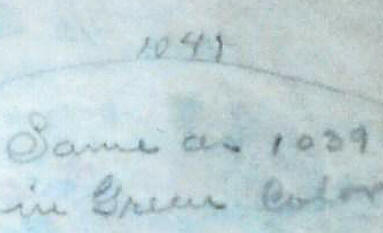 1041
Same as 1039
in Green Color